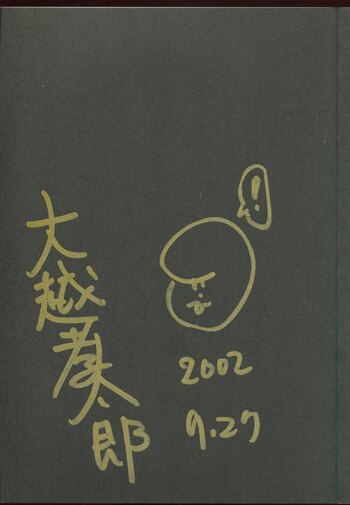 大越孝太郎
!
2002
9.27